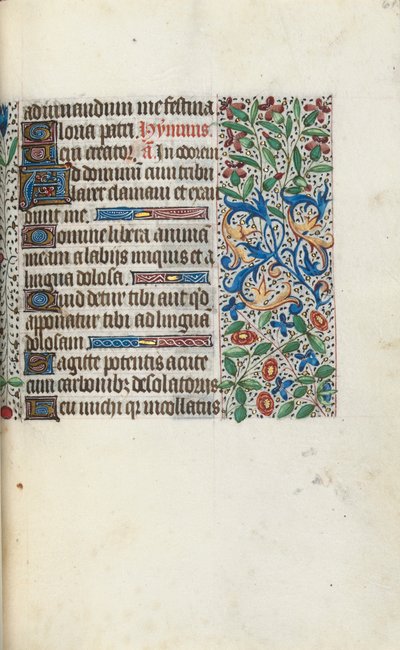 61
ad iuuandum me festina
Gloria patri. Hymnus
Uen creator. a. In conuer
Ad dominum cum tribu
larer clamaui et exau
diuit me.
Domine libera animā
meam a labijs iniquis et a
lingua dolosa.
Quid detur tibi aut qd
apponatur tibi ad lingua
dolosam.
Sagitte potentis acute
cum carbonibz desolatorijs
Heu michi qr incollatus